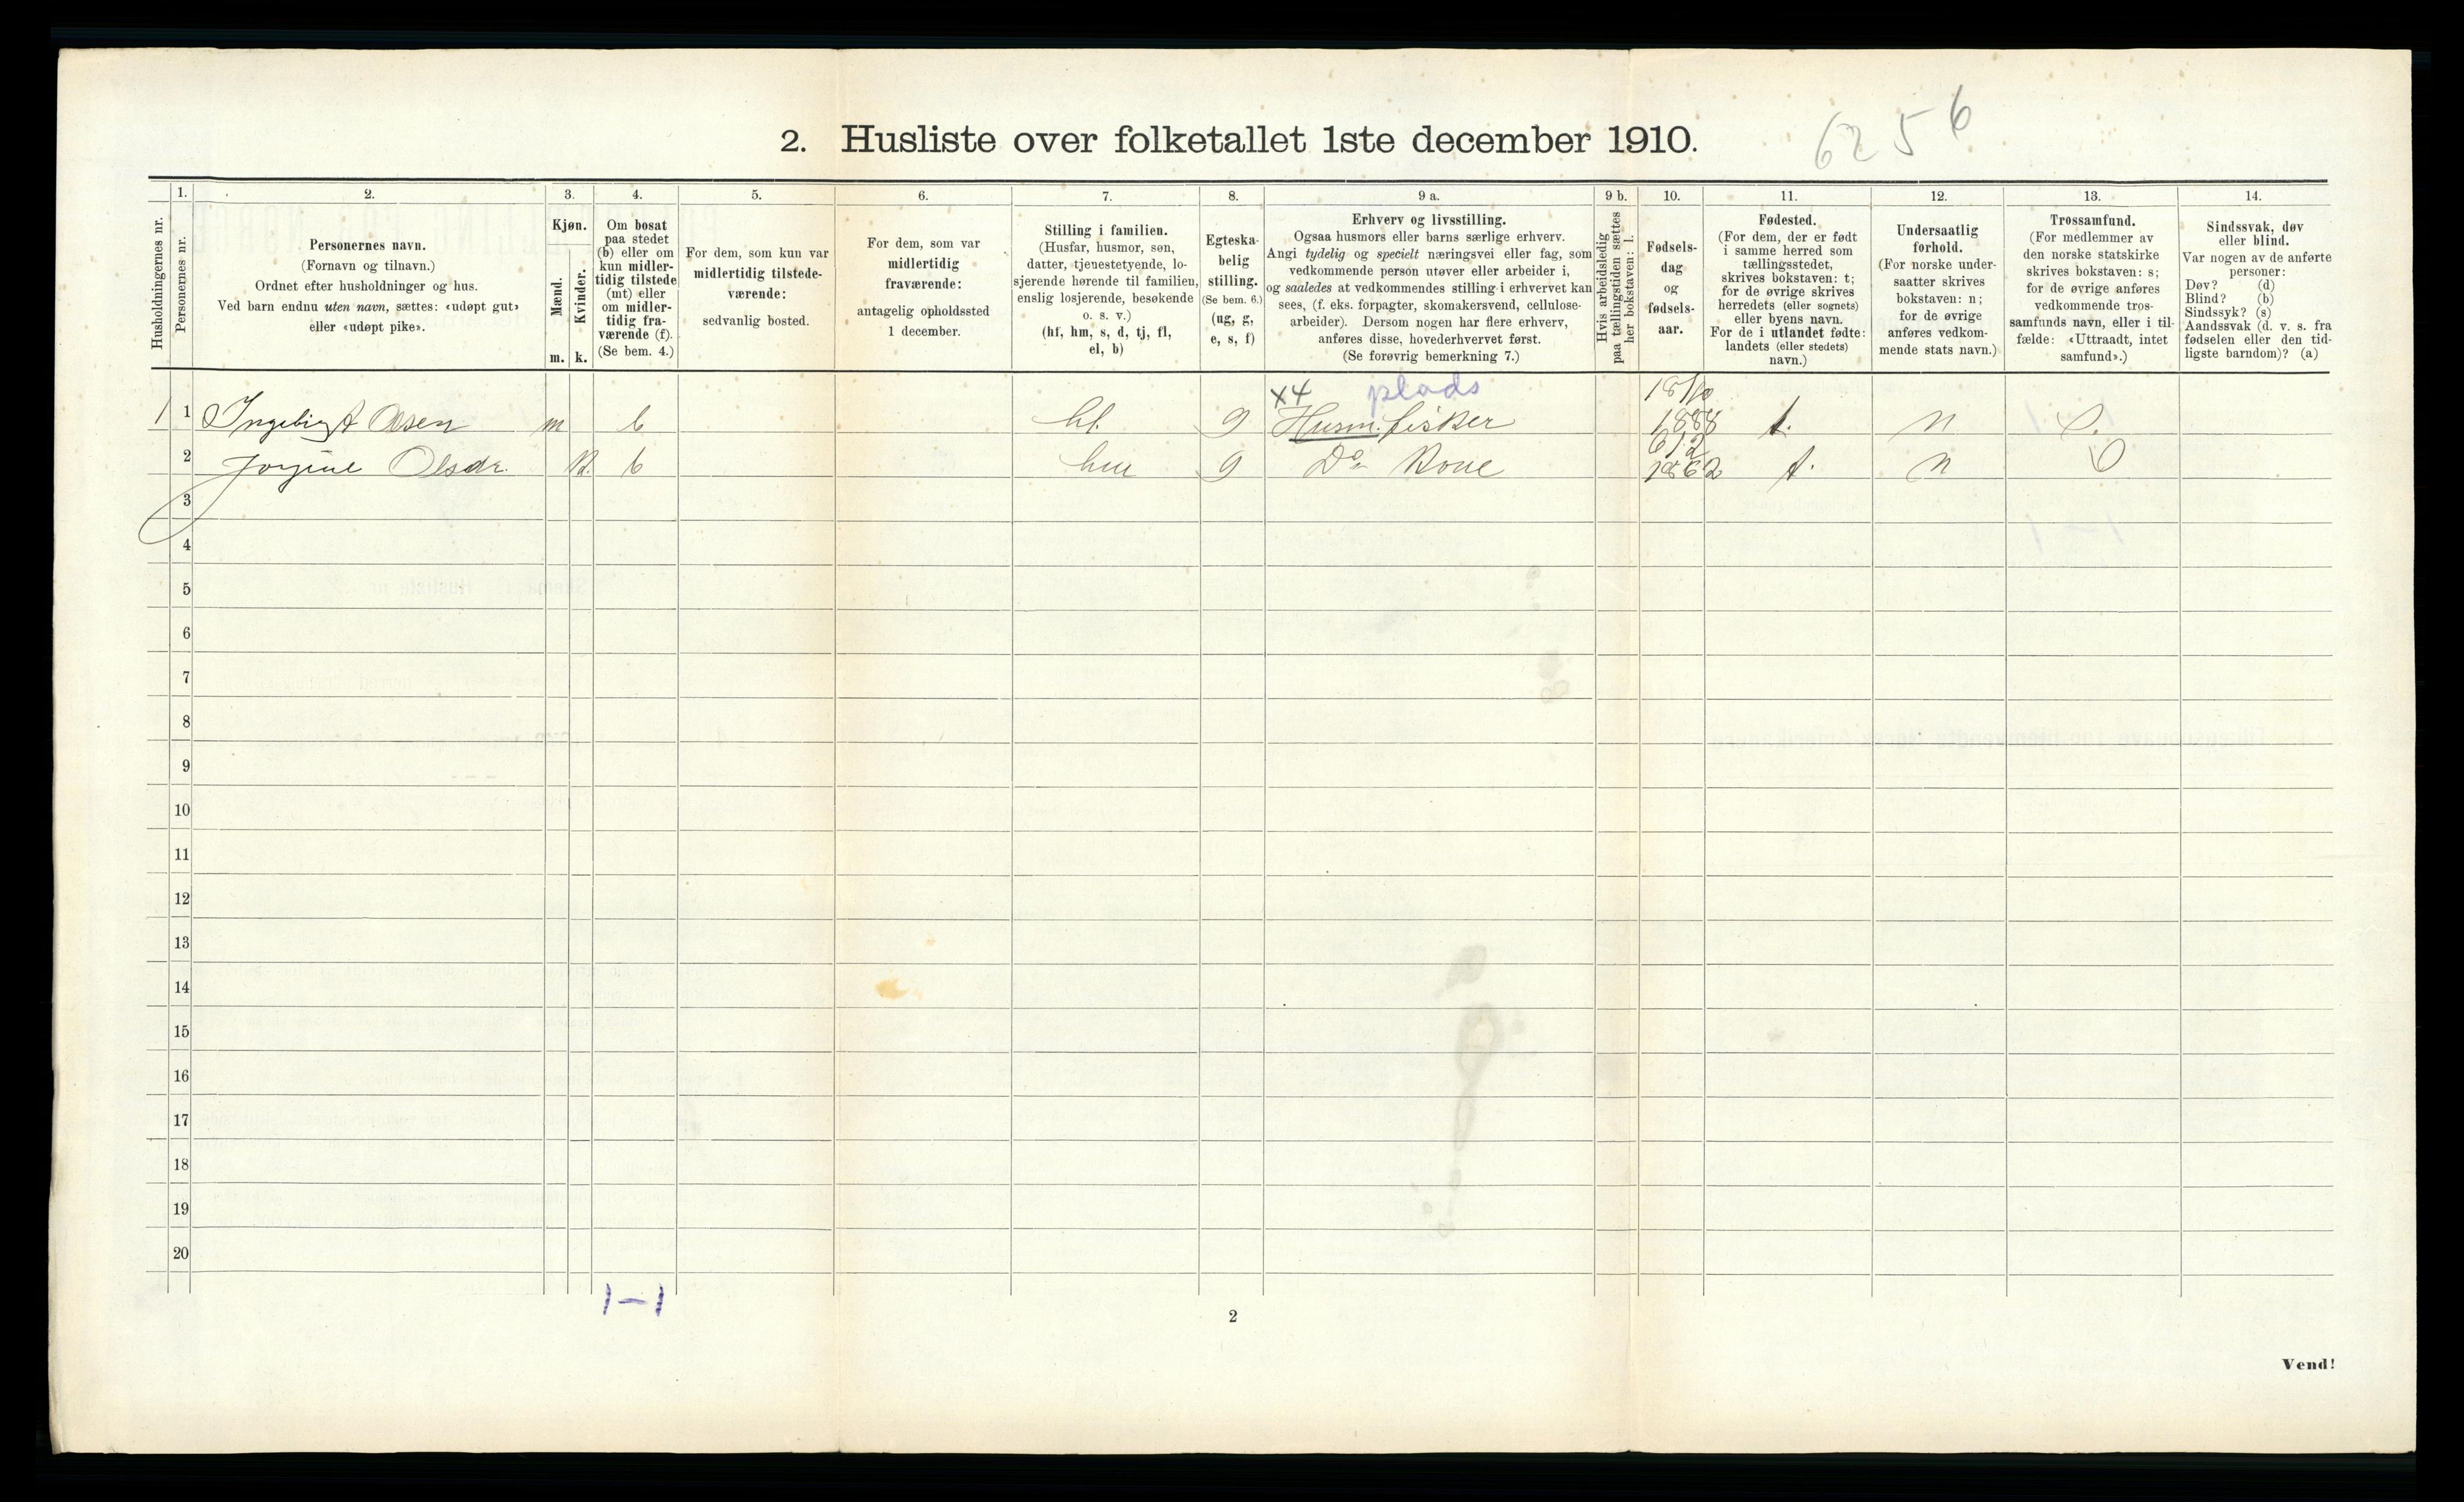 2. Husliste over folketallet 1ste december 1910.
6256
Husholdningernes nr.
1.
Personernes nr.
2.
Personernes navn.
(Fornavn og tilnavn.)
Ordnet efter husholdninger og hus.
Ved barn endnu uten navn, sættes: «udøpt gut»
eller «udøpt pike».
3.
Kjøn.
Mænd.
Kvinder.
m. k.
4.
Om bosat
paa stedet
(b) eller om
kun midler-
tidig tilstede
(mt) eller
om midler-
tidig fra-
værende (f).
(Se bem. 4.)
5.
For dem, som kun var
midlertidig tilstede-
værende:
sedvanlig bosted.
6.
For dem, som var
midlertidig
fraværende:
antagelig opholdssted
1 december.
7.
Stilling i familien.
(Husfar, husmor, søn,
datter, tjenestetyende, lo-
sjerende hørende til familien,
enslig losjerende, besøkende
o. s. v.)
(hf, hm, s, d, tj, fl,
el, b)
8.
Egteska-
belig
stilling.
(Se bem. 6.)
(ug, g,
e, s, f)
9 a.
Erhverv og livsstilling.
Ogsaa husmors eller barns særlige erhverv.
Angi tydelig og specielt næringsvei eller fag, som
vedkommende person utøver eller arbeider i,
og saaledes at vedkommendes stilling i erhvervet kan
sees, (f. eks. forpagter, skomakersvend, cellulose-
arbeider). Dersom nogen har flere erhverv,
anføres disse, hovederhvervet først.
(Se forøvrig bemerkning 7.)
9 b.
Hvis arbeidsledig
paa tællingstiden sættes
her bokstaven: l.
10.
Fødsels-
dag
og
fødsels-
aar.
11.
Fødested.
(For dem, der er født
i samme herred som
tællingsstedet,
skrives bokstaven: t;
for de øvrige skrives
herredets (eller sognets)
eller byens navn.
For de i utlandet fødte:
landets (eller stedets)
navn.)
12.
Undersaatlig
forhold.
(For norske under-
saatter skrives
bokstaven: n;
for de øvrige
anføres vedkom-
mende stats navn.)
13.
Trossamfund.
(For medlemmer av
den norske statskirke
skrives bokstaven: s;
for de øvrige anføres
vedkommende tros-
samfunds navn, eller i til-
fælde: «Uttraadt, intet
samfund».)
14.
Sindssvak, døv
eller blind.
Var nogen av de anførte
personer:
Døv? (d)
Blind? (b)
Sindssyk? (s)
Aandssvak (d. v. s. fra
fødselen eller den tid-
ligste barndom)? (a)
x4 plads
1 1 Ingebrigt Olsen m b hf. g Husm. fisker t. n s.
2 Jorgine Olsdr. k. b hm g Do Kone 6/2 1862 t. n s
3
4
5
6
7
8
9
10
11
12
13
14
15
16
17
18
19
20
1-1
2
Vend!